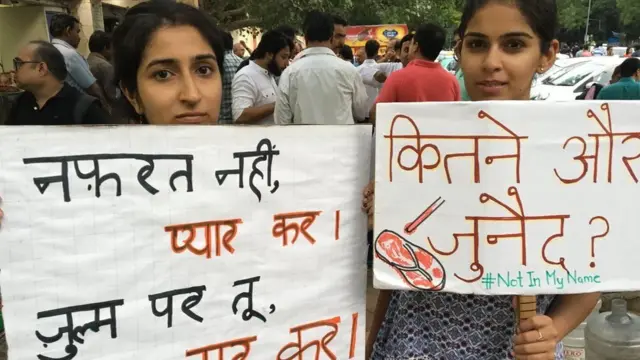 नफ़रत नहीं,
प्यार कर।
ज़ुल्म पर तू,
कर।
कितने और
जुनैद?
#Not In My Name